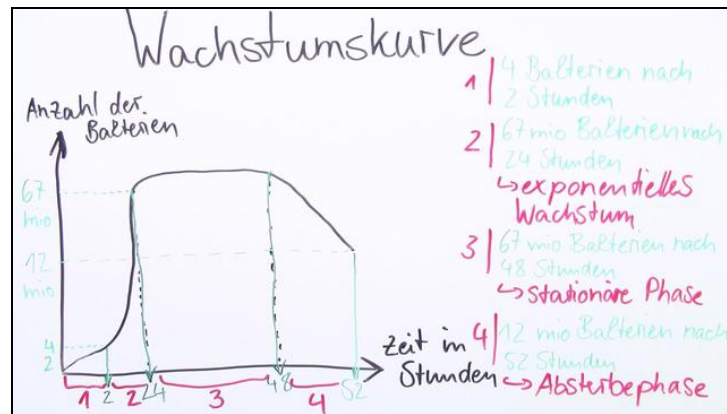 Wachstumskurve
Anzahl der.
Bakterien
67
mio
12
mio
4
2
2
24
48
52
1
2
3
4
Zeit in
Stunden
1 | 4 Bakterien nach
2 Stunden
2 | 67 mio Bakterien nach
24 Stunden
↳ exponentielles
Wachstum
3 | 67 mio Bakterien nach
48 Stunden
↳ Stationäre Phase
4 | 12 mio Bakterien nach
52 Stunden
↳ Absterbephase